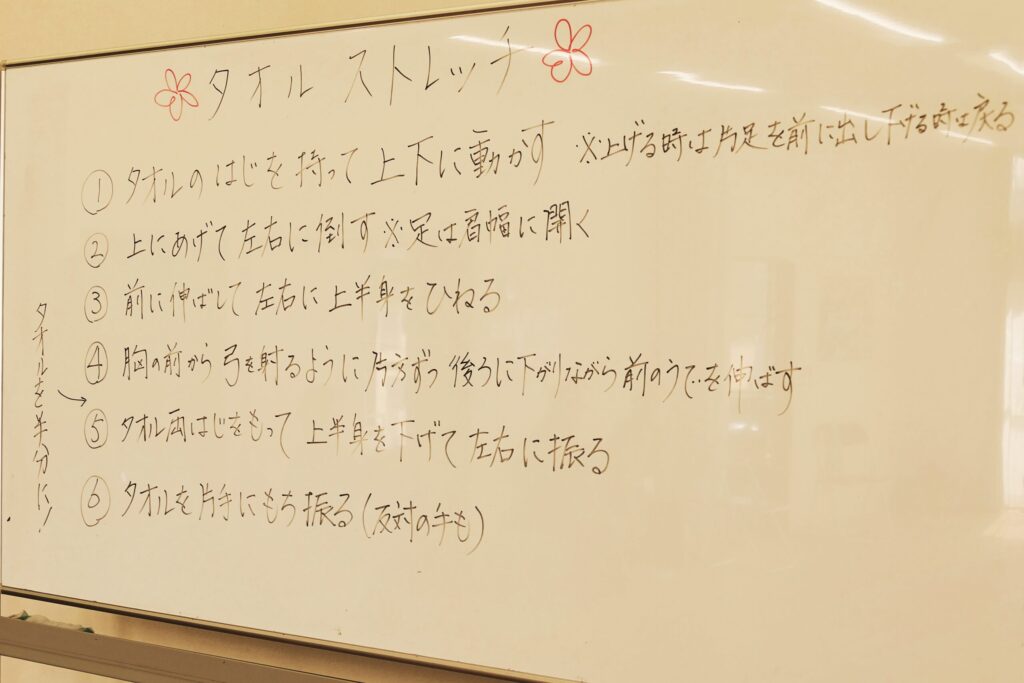 タオル ストレッチ
① タオルのはじを持って上下に動かす ※上げる時は片足を前に出し下げる時は戻る
② 上にあげて左右に倒す ※足は肩幅に開く
③ 前に伸ばして左右に上半身をひねる
④ 胸の前から弓を射るように片方ずつ後ろに下がりながら前のうでを伸ばす
タオルを半分に!
⑤ タオル両はじをもって 上半身を下げて左右に振る
⑥ タオルを片手にもち振る(反対の手も)